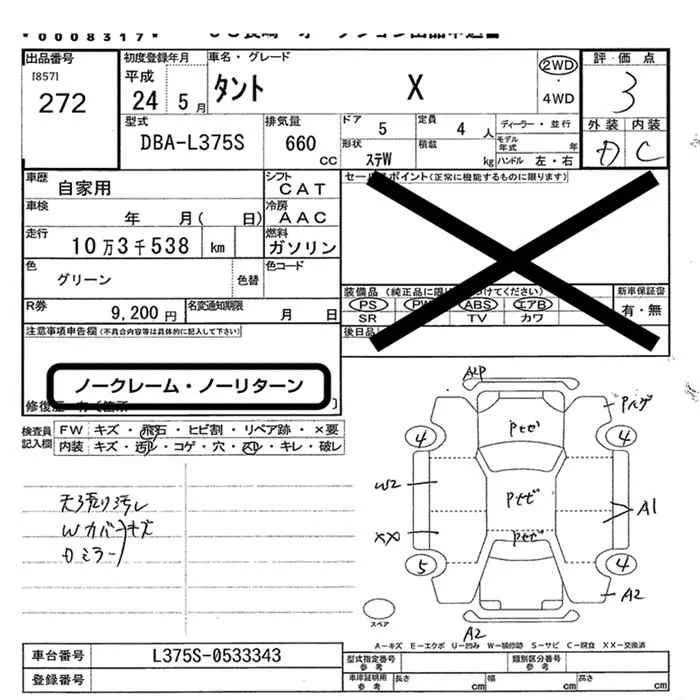 *0008317*
出品番号
[857]
272
初度登録年月
平成
24 5月
車名・グレード
タント X
2WD
・
4WD
評価点
3
外装 内装
D C
型式
DBA-L375S
排気量
660
CC
ドア
5
定員
4 人
形状
ステW
積載
kg
ディーラー・並行
モデル
年式 年
ハンドル 左・右
車歴
自家用
シフト
CAT
車検
年 月( 日)
冷房
AAC
走行
10万3千538 km
燃料
ガソリン
色
グリーン
色替
色コード
R券
9,200円
名変通知期限
月 日
セールスポイント(正常に機能するものに限ります)
装備品
PS PW ABS エアB
SR TV カワ
新車保証書
有・無
後日品
注意事項申告欄(不具合内容等は具体的に記入して下さい)
ノークレーム・ノーリターン
検査員
記入欄
FW キズ・飛石・ヒビ割・リペア跡・×要
内装 キズ・汚レ・コゲ・穴・スレ・キレ・破レ
天張り汚レ
Wカバーキズ
Dミラー
ALP
Pハゲ
Pセゼ
4
4
W2
Pセゼ
A1
XX
Pセゼ
5
4
A2
スペア
A2
A-キズ E-エクボ U-凹み W-補修跡 S-サビ C-腐食 XX-交換済
車台番号
L375S-0533343
登録番号
型式指定番号
参考
類別区分番号
参考
車庫証明用
参考
長さ cm
幅 cm
高さ cm